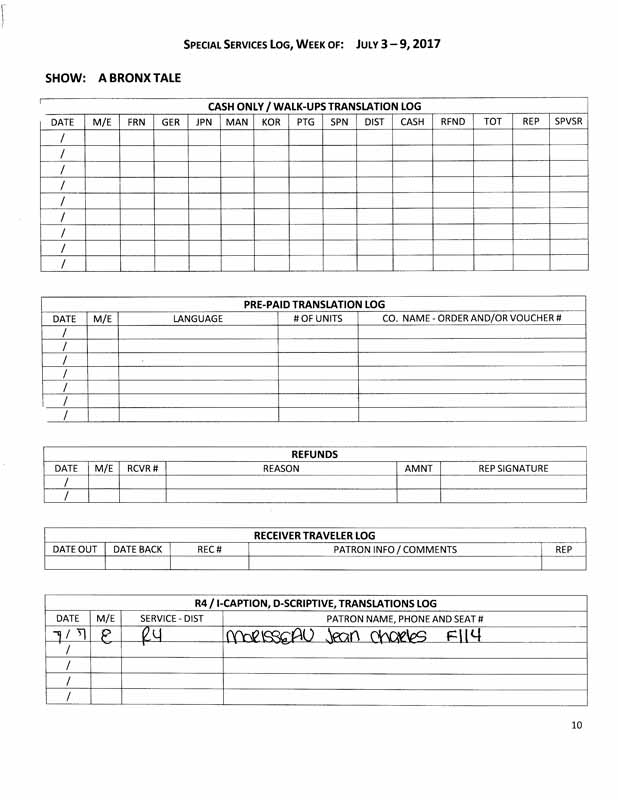 SPECIAL SERVICES LOG, WEEK OF: JULY 3 – 9, 2017
SHOW: A BRONX TALE
CASH ONLY / WALK-UPS TRANSLATION LOG
DATE M/E FRN GER JPN MAN KOR PTG SPN DIST CASH RFND TOT REP SPVSR
/
/
/
/
/
/
/
/
/
PRE-PAID TRANSLATION LOG
DATE M/E LANGUAGE # OF UNITS CO. NAME - ORDER AND/OR VOUCHER #
/
/
/
/
/
/
/
REFUNDS
DATE M/E RCVR # REASON AMNT REP SIGNATURE
/
/
RECEIVER TRAVELER LOG
DATE OUT DATE BACK REC # PATRON INFO / COMMENTS REP
R4 / I-CAPTION, D-SCRIPTIVE, TRANSLATIONS LOG
DATE M/E SERVICE - DIST PATRON NAME, PHONE AND SEAT #
7/7 E R4 MORISSEAU Jean Charles F114
/
/
/
/
10